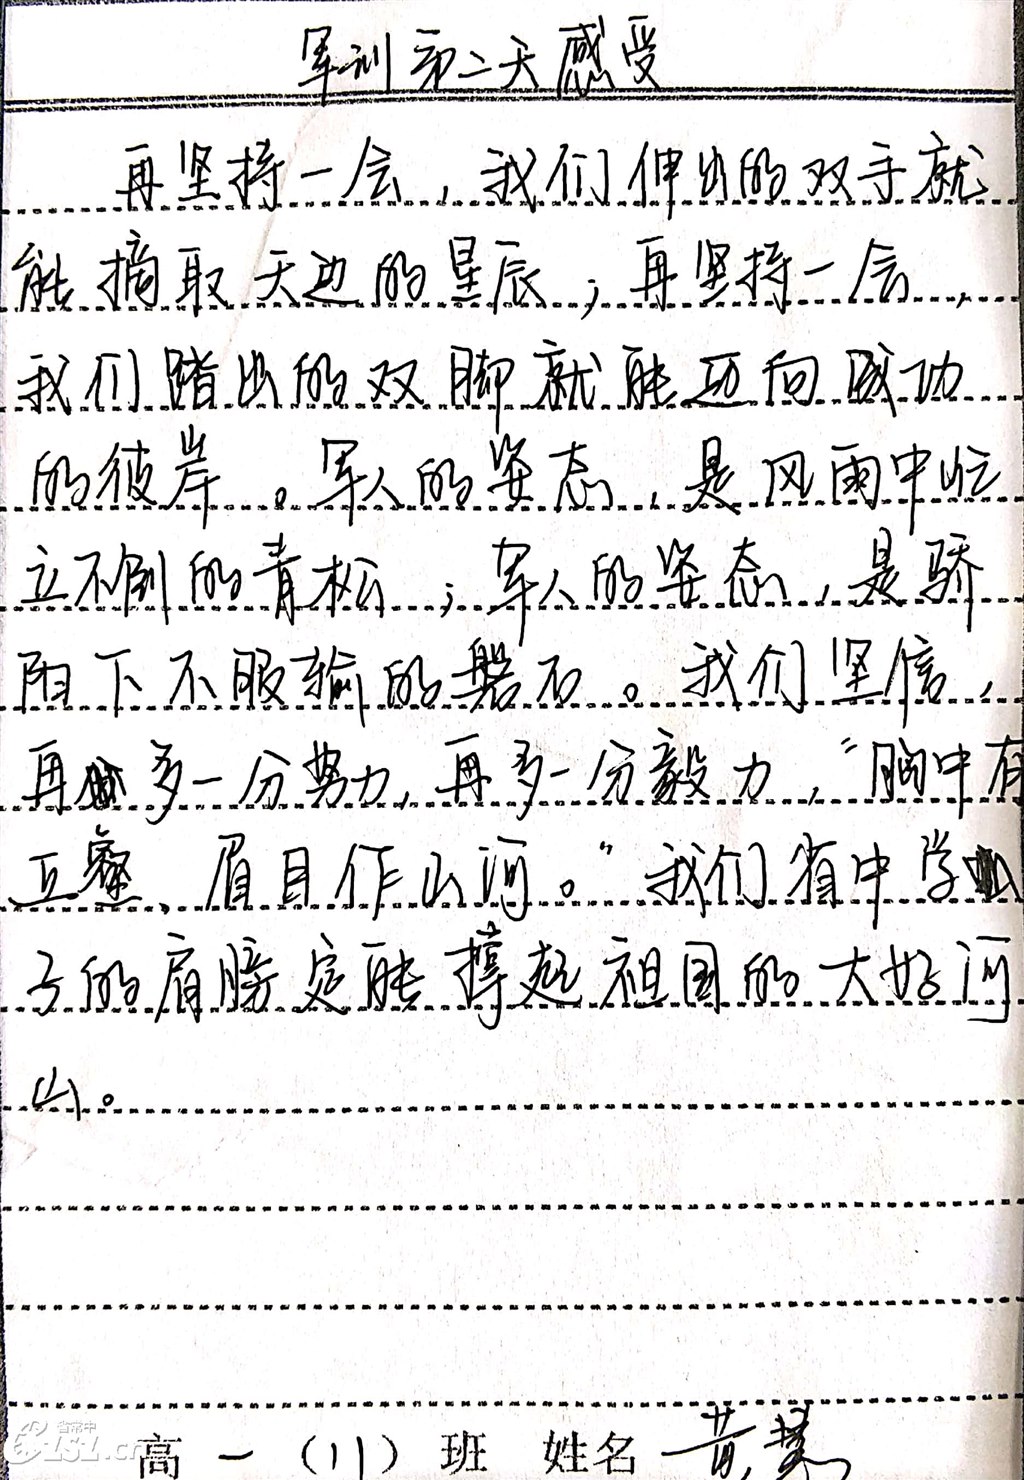 军训第二天感受
再坚持一会，我们伸出的双手就
能摘取天边的星辰；再坚持一会，
我们踏出的双脚就能迈向成功
的彼岸。军人的姿态，是风雨中屹
立不倒的青松；军人的姿态，是骄
阳下不服输的磐石。我们坚信，
再多一分努力，再多一分毅力，“胸中有
丘壑、眉目作山河。”我们省中学
子的肩膀定能撑起祖国的大好河
山。
高一（11）班 姓名 黄
省常中